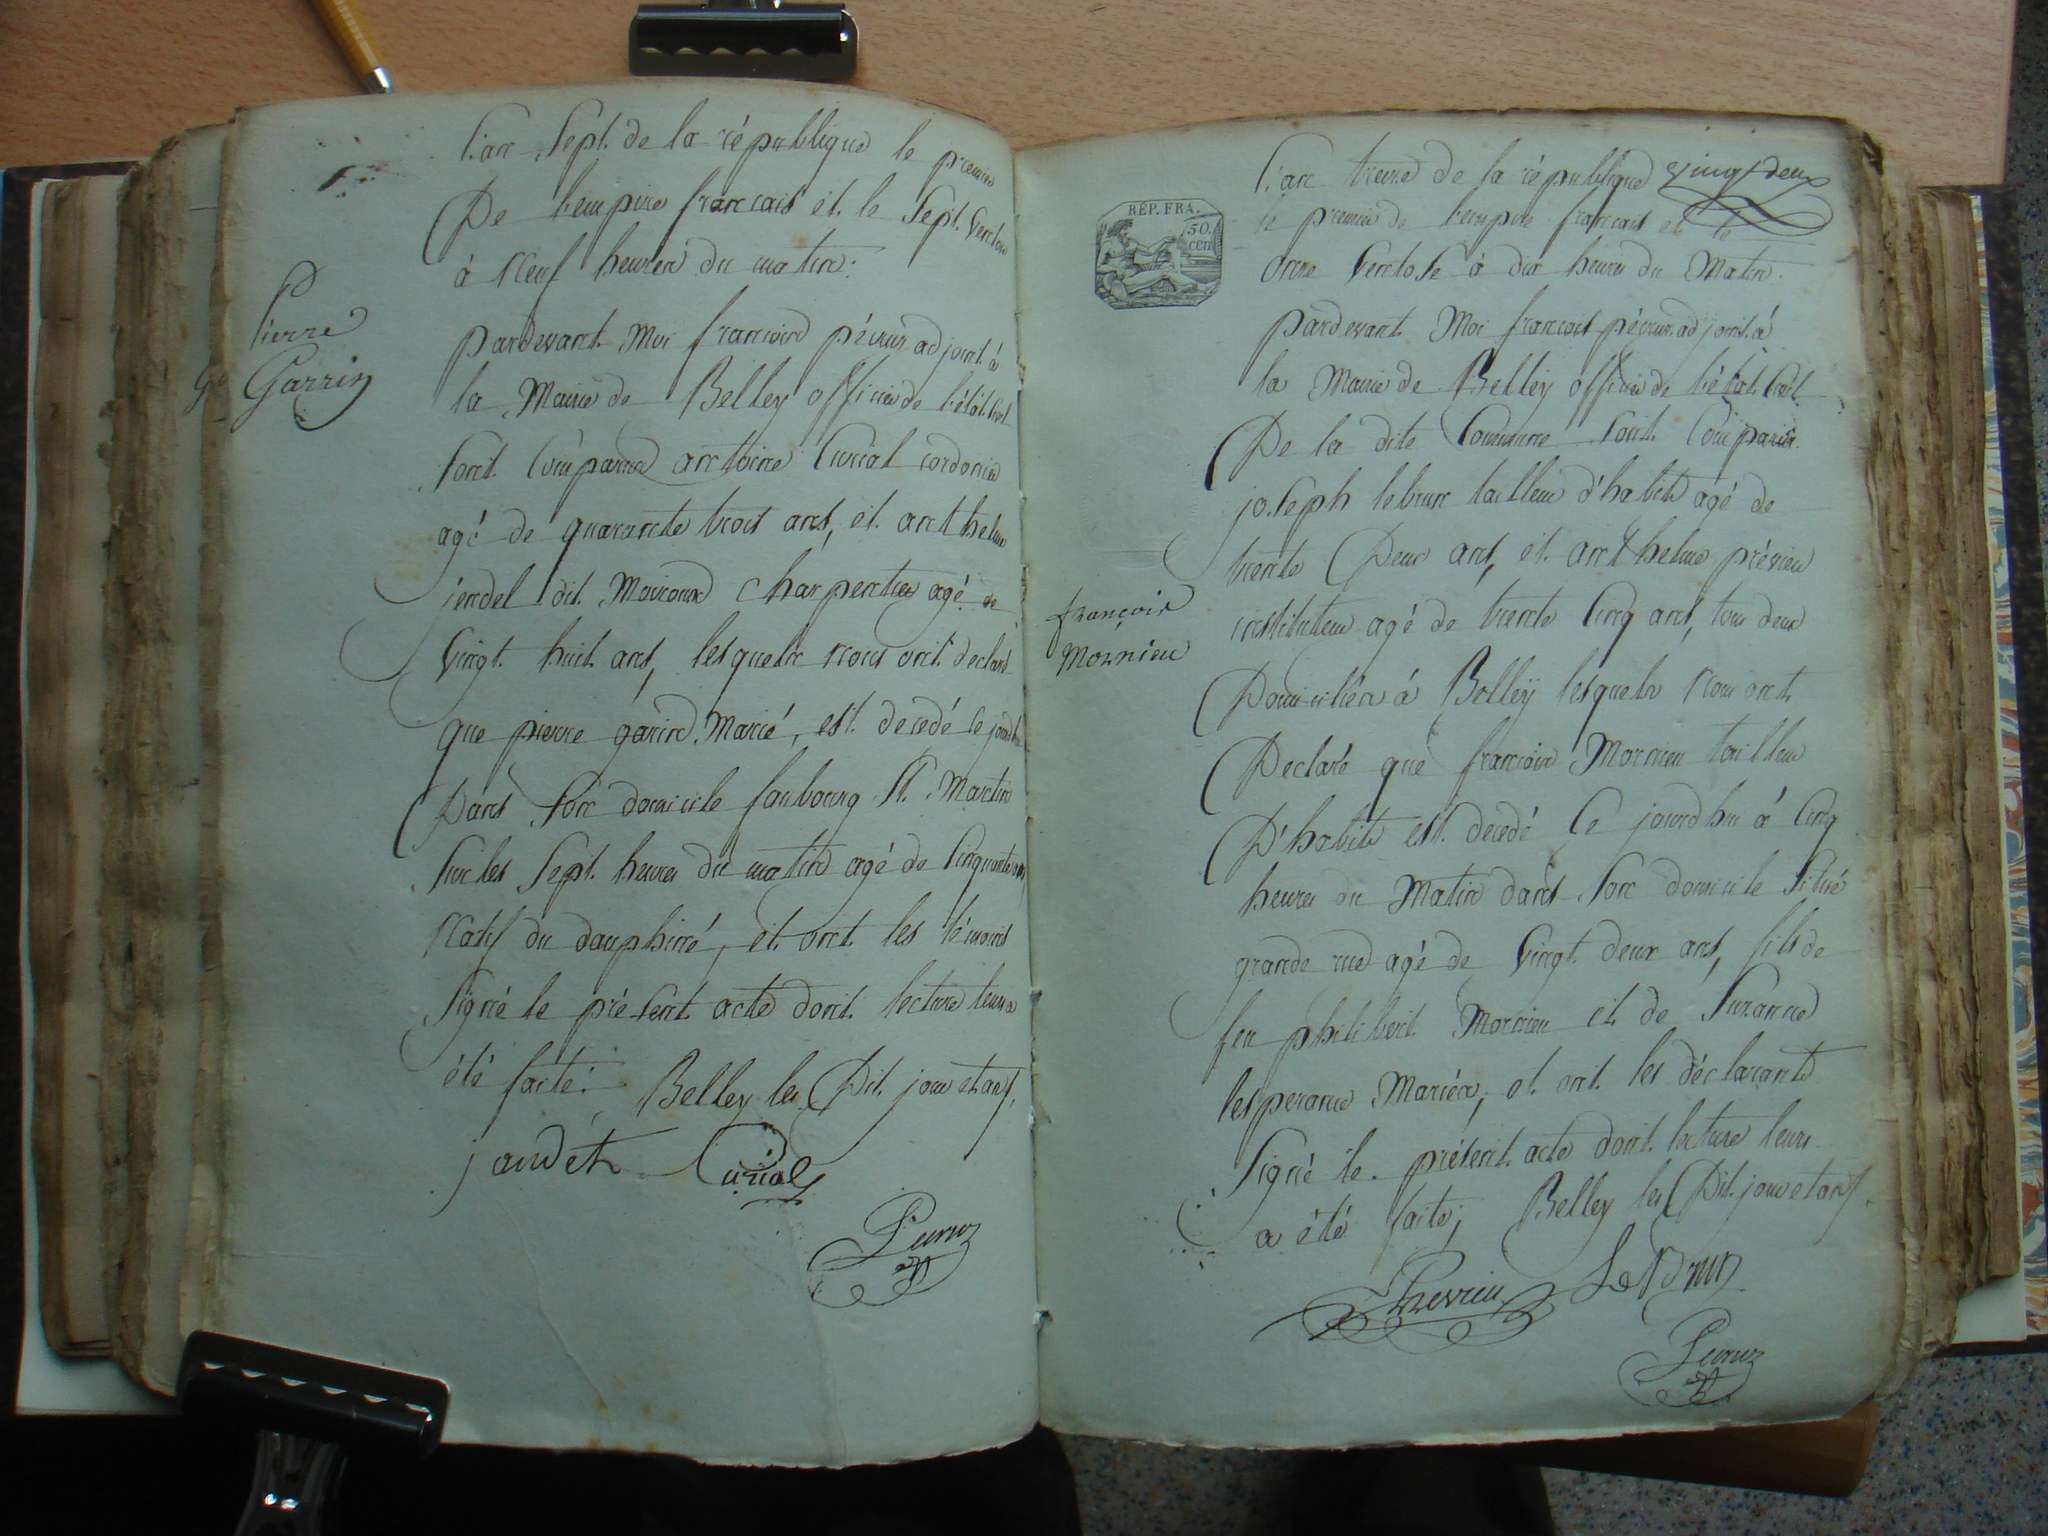 l'an sept de la république le premier
De l'empire francais et le sept Ventose
à Neuf heures du matin.
Pierre
Garrin
pardevant Moi francois pévrux adjoint à
la Mairie de Belley officier de l'état Civil
sont Comparus antoine Curial cordonier
agé de quarante trois ans, et anthelme
jendet dit Moiroux Charpentier agé de
Vingt huit ans, lesquels nous ont declaré
que pierre garin Marié, est decedé ce jourdhui
Dans son domicile faubourg St. Martin
sur les sept heures du matin agé de Cinquante ans
Natif du dauphiné, et ont les témoins
signé le présent acte dont lecture leur a
été faite. Belley les Dit jour et an.
jandét Curial
l'an treize de la république vingt deux
le premier de l'empire francais et le
onze Ventose à dix heures du Matin.
RÉP. FRA.
50.
cen
pardevant Moi francois pévrux adjoint à
la Mairie de Belley officier de l'état Civil
De la dite Commune sont Comparus
joseph lebrun tailleur d'habits agé de
trente Deux ans, et anthelme prévieu
instituteur agé de trente Cinq ans, tous deux
françois
Mornieu
Domiciliés à Belley lesquels Nous ont
Declaré que francois Mornieu tailleur
D'habits est decedé Ce jourdhui à Cinq
heures du Matin dans son domicile situé
grande rue agé de Vingt deux ans, fils de
feu philibert Mornieu et de Suzanne
lesperance Mariés, et ont les déclarants
signé le présent acte dont lecture leurs
a été faite, Belley les Dit jour et an.
Previeu LeBrun